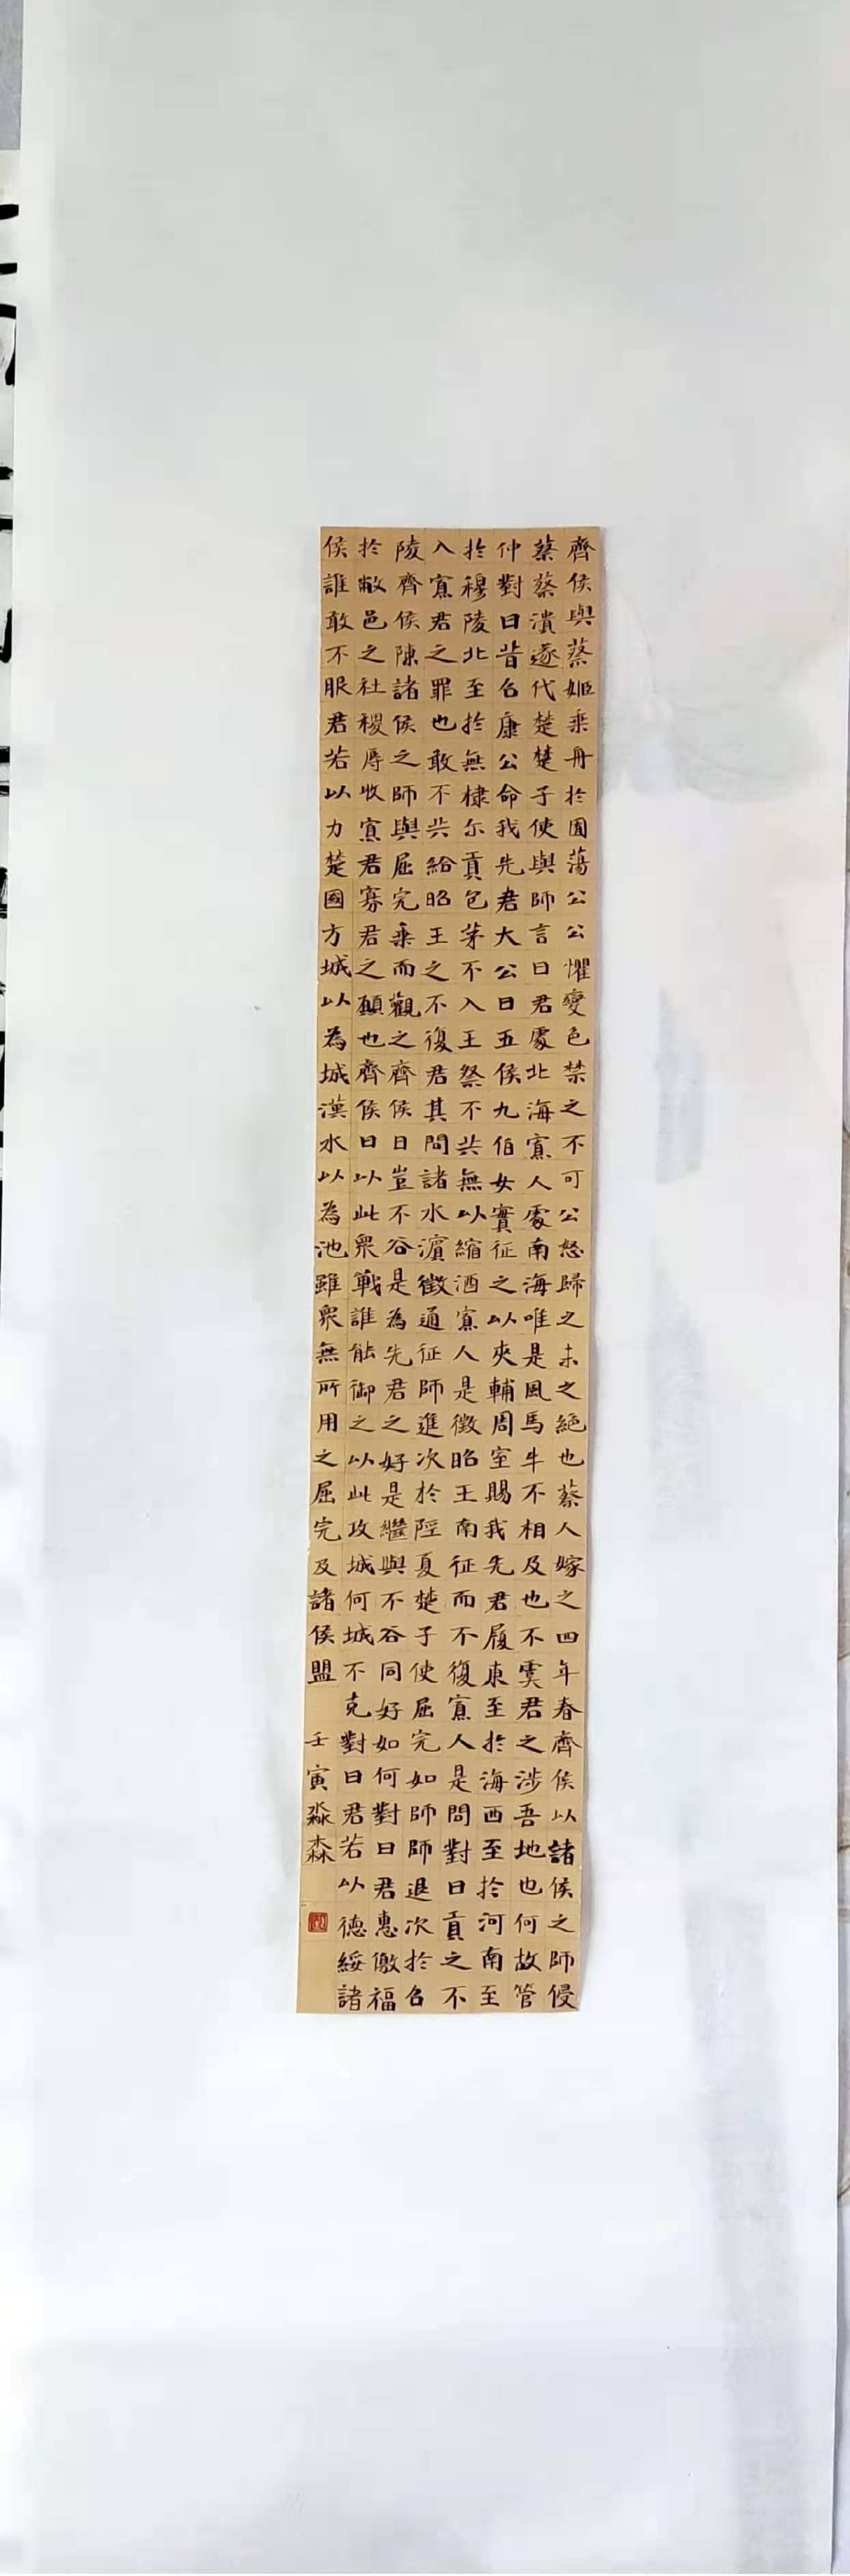 齊侯與蔡姬乘舟於囿蕩公公懼變色禁之不可公怒歸之未之絕也蔡人嫁之四年春齊侯以諸侯之師侵
蔡蔡潰遂代楚楚子使與師言曰君處北海寡人處南海唯是風馬牛不相及也不虞君之涉吾地也何故管
仲對曰昔召康公命我先君大公曰五侯九伯女實征之以夾輔周室賜我先君履東至於海西至於河南至
於穆陵北至於無棣尔貢包茅不入王祭不共無以縮酒寡人是徵昭王南征而不復寡人是問對曰貢之不
入寡君之罪也敢不共給昭王之不復君其問諸水濱徵通征師進次於陘夏楚子使屈完如師師退次於召
陵齊侯陳諸侯之師與屈完乘而觀之齊侯曰豈不谷是為先君之好是繼與不谷同好如何對曰君惠徼福
於敝邑之社稷辱收寡君寡君之願也齊侯曰以此眾戰誰能御之以此攻城何城不克對曰君若以德綏諸
侯誰敢不服君若以力楚國方城以為城漢水以為池雖眾無所用之屈完及諸侯盟
壬寅淼森